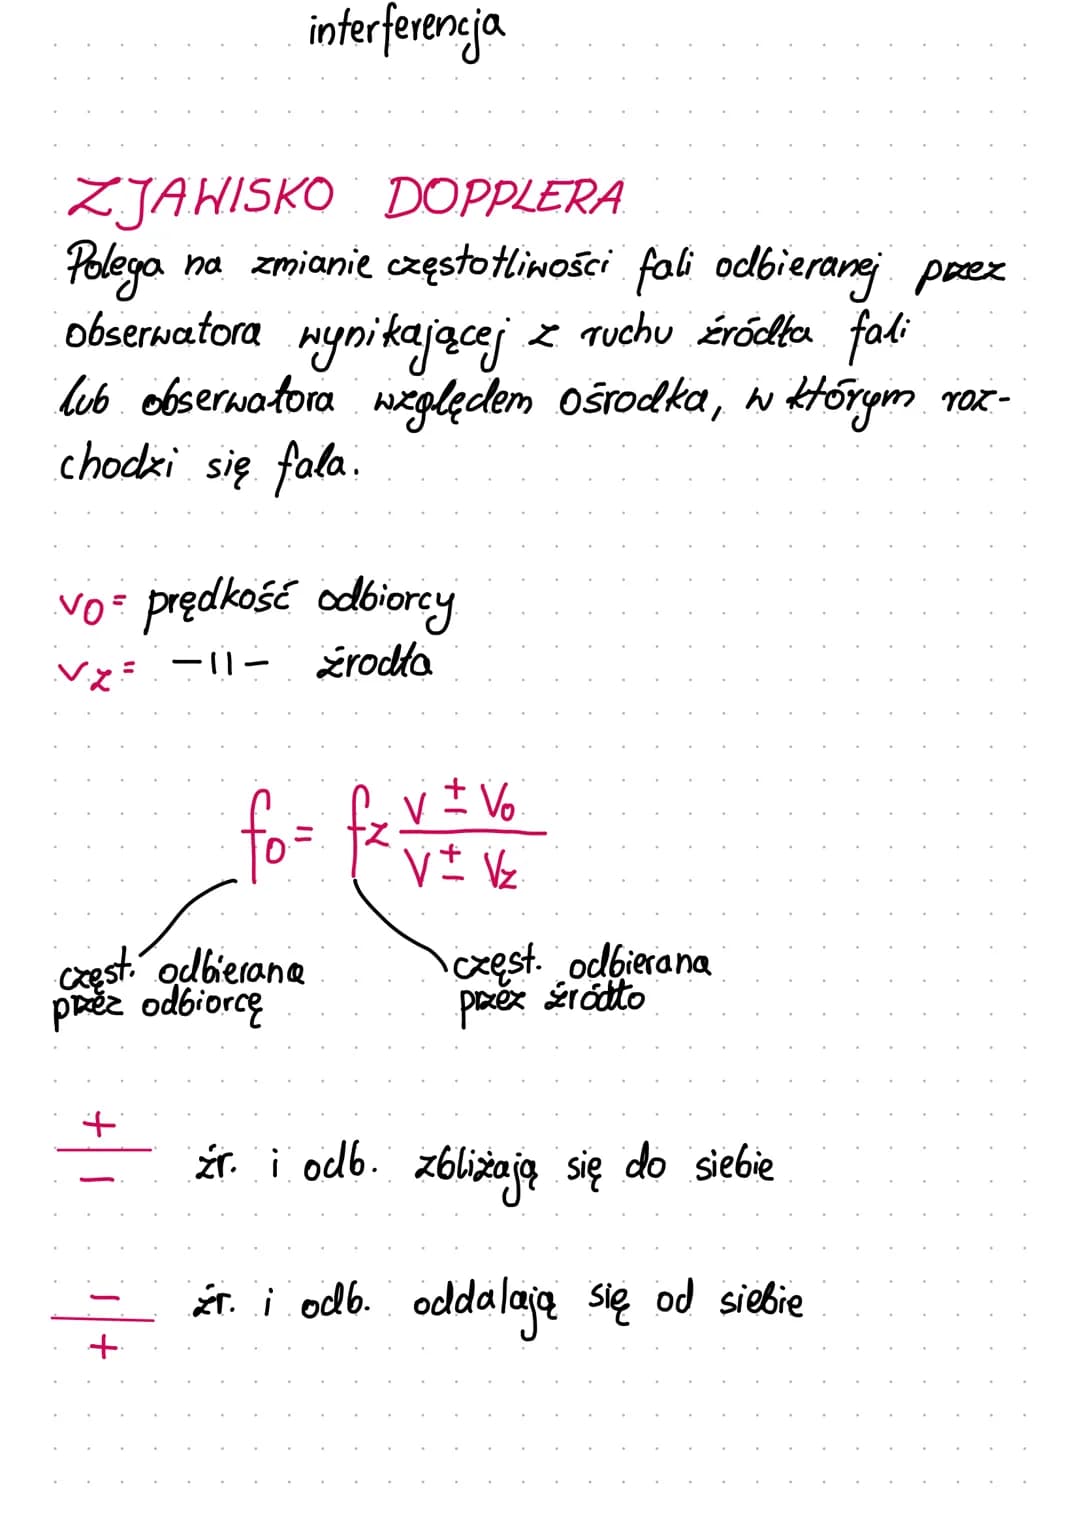 interferencja
ZJAWISKO DOPPLERA
Polega na zmianie częstotliwości fali odbieranej przez
obserwatora wynikającej z ruchu źródła fali
lub obserwatora względem ośrodka, w którym roz-
chodzi się fala.
v₀ = prędkość odbiorcy
v_z = -||- źrodła
f₀ = f_z (v ± v₀)/(v ± v_z)
częst. odbierana
przez odbiorcę
częst. odbierana
przez źródło
+
—
− źr. i odb. zbliżają się do siebie
−
—
+ źr. i odb. oddalają się od siebie